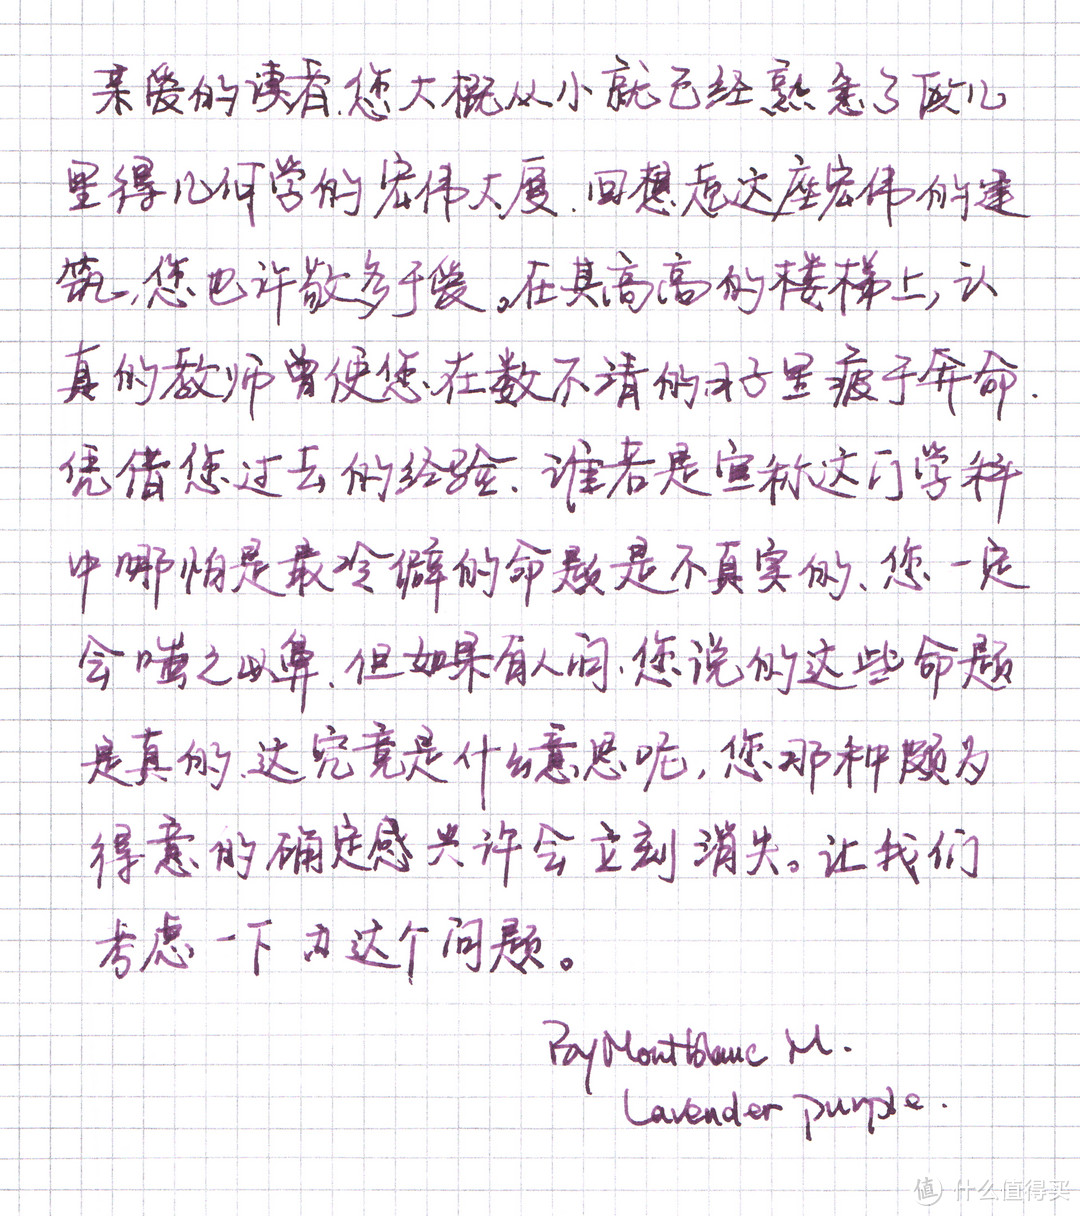 亲爱的读者,您大概从小就已经熟悉了欧几
里得几何学的宏伟大厦.回想起这座宏伟的建
筑,您也许敬多于爱。在其高高的楼梯上,认
真的教师曾使您在数不清的日子里疲于奔命.
凭借您过去的经验.谁若是宣称这门学科
中哪怕是最冷僻的命题是不真实的、您一定
会嗤之以鼻.但如果有人问,您说的这些命题
是真的,这究竟是什么意思呢,您那种颇为
得意的确定感也许会立刻消失。让我们
考虑一下这个问题。
By Montblanc M.
Lavender purple.
值 什么值得买